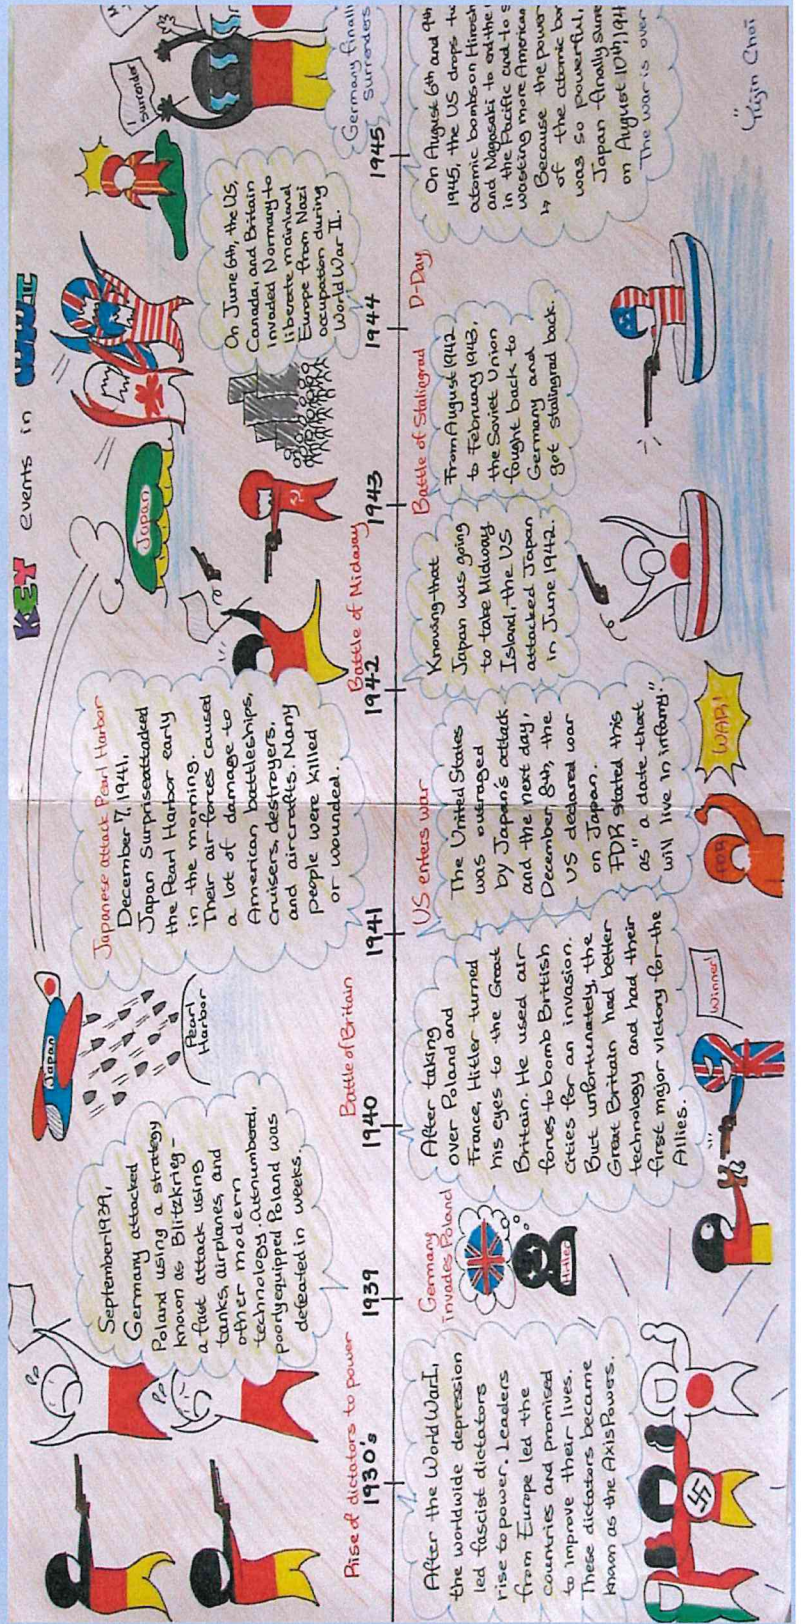 KEY events in WWII
Rise of dictators to power
1930's
After the World War I,
the worldwide depression
led fascist dictators
rise to power. Leaders
from Europe led the
countries and promised
to improve their lives.
These dictators became
known as the Axis Powers.
1939
Germany
invades Poland
September 1939,
Germany attacked
Poland using a strategy
known as Blitzkrieg-
a fast attack using
tanks, airplanes, and
other modern
technology. Outnumbered,
poorly equipped Poland was
defeated in weeks.
Hitler
Battle of Britain
1940
After taking
over Poland and
France, Hitler turned
his eyes to the Great
Britain. He used air
forces to bomb British
cities for an invasion.
But unfortunately, the
Great Britain had better
technology and had their
first major victory for the
Allies.
Winner!
Japan
Pearl
Harbor
1941
Japanese attack Pearl Harbor
December 7, 1941,
Japan Surprise attacked
the Pearl Harbor early
in the morning.
Their air forces caused
a lot of damage to
American battleships,
cruisers, destroyers,
and aircrafts. Many
people were killed
or wounded.
US enters war
The United States
was outraged
by Japan's attack
and the next day,
December, 8th, the
US declared war
on Japan.
FDR stated this
as "a date that
will live in infamy."
FDR
WAR!
Battle of Midway
1942
Knowing that
Japan was going
to take Midway
Island, the US
attacked Japan
in June 1942.
Japan
1943
Battle of Stalingrad
From August 1942
to February 1943,
the Soviet Union
fought back to
Germany and
got Stalingrad back.
1944
D-Day
On June 6th, the US,
Canada, and Britain
invaded Normany to
liberate mainland
Europe from Nazi
occupation during
World War II.
1945
Germany finall
surrenders
I
surrender
On August 6th and 9th
1945, the US drops tw
atomic bombs on Hirosh
and Nagasaki to end the
in the Pacific and to s
wasting more American
↳ Because the power
of the atomic bo
was so powerful,
Japan finally surre
on August 10th, 194
The war is over
Yujin Choi